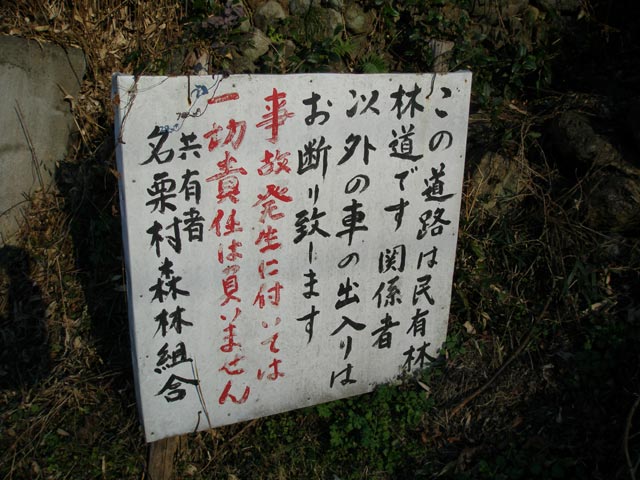 この道路は民有林
林道です関係者
以外の車の出入りは
お断り致します
事故発生に付いては
一切責任は負いません
共有者
名栗村森林組合